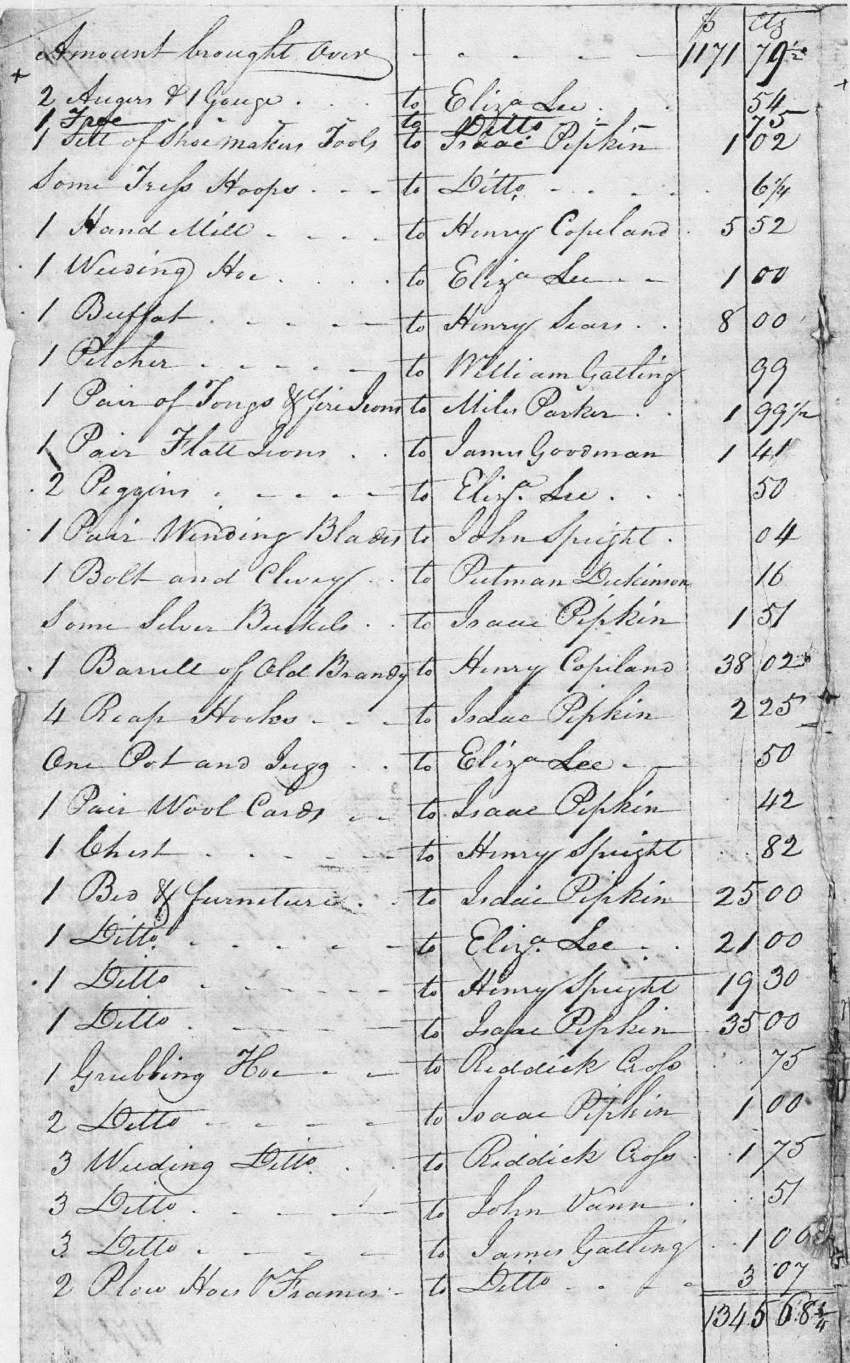 $ Cts
Amount brought Over - - - - - 1171 79 1/2
2 Augers & 1 Gouge . . . to Eliza Lee . . 54
1 Froe - - - - to Ditto - - 75
1 Sett of Shoemakers Tools to Isaac Pipkin 1 02
Some Tress Hoops - - - to Ditto - - - - 6 1/4
1 Hand Mill - - - - to Henry Copeland . 5 52
1 Weeding Hoe . . . . to Eliza Lee - - 1 00
1 Buffat . - - - - to Henry Sears . . 8 00
1 Pitcher - - - - - to William Gatling 99
1 Pair of Tongs & fire Irons to Miles Parker . . 1 99 1/2
1 Pair Flatt Irons . . to James Goodman 1 41
2 Piggins . - - - - to Eliza. Lee . . . 50
1 Pair Winding Blades to John Speight . 04
1 Bolt and Clevey . . to Putman Dickinson 16
Some Silver Buckels . . to Isaac Pipkin 1 51
1 Barrell of Old Brandy to Henry Copeland 38 02
4 Reap Hooks - - - to Isaac Pipkin 2 25
One Pot and Jugg . . to Eliza Lee - - 50
1 Pair Wool Cards - - to Isaac Pipkin 42
1 Chest . - - - - to Henry Speight 82
1 Bed & furniture . . to Isaac Pipkin 25 00
1 Ditto . - - - - to Eliza. Lee . . 21 00
1 Ditto - - - - - to Henry Speight 19 30
1 Ditto . - - - - to Isaac Pipkin 35 00
1 Grubbing Hoe - - - to Riddick Cross . 75
2 Ditto - - - - - to Isaac Pipkin 1 00
3 Weeding Ditto . . to Riddick Cross . 1 75
3 Ditto . - - - to John Vann . 51
3 Ditto . - - - to James Gatling . . 1 00
2 Plow Hoes & Frames - to Ditto - - - - 3 07
1345 68 3/4